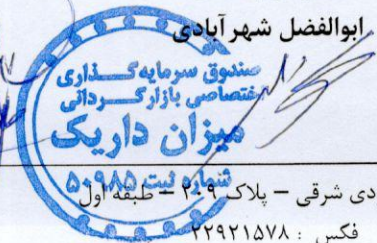 ابوالفضل شهرآبادی
صندوق سرمایه‌گذاری
اختصاصی بازارگردانی
میزان داریک
شماره ثبت ۵۰۹۸۵
دی شرقی – پلاک ۲۰۹ – طبقه اول
فکس : ۲۲۹۲۱۵۷۸